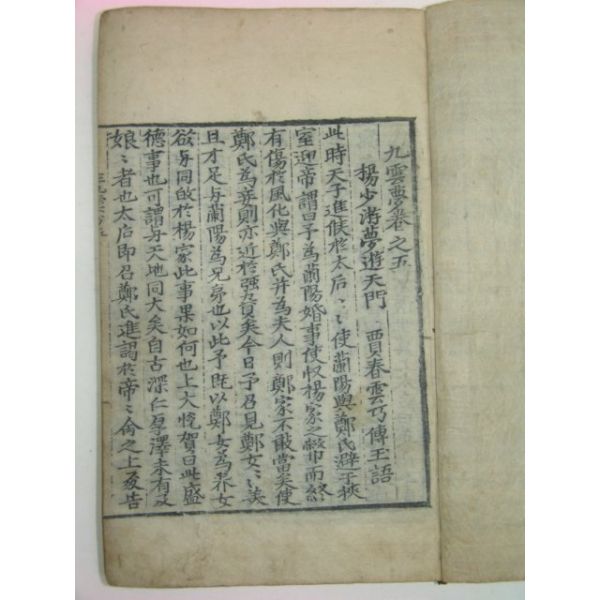 九雲夢卷之五
楊少游夢遊天門 賈春雲巧傳玉語
此時天子進候於太后〻〻使蘭陽與鄭氏避于挾
室迎帝謂曰予為蘭陽婚事使収楊家之幣而終
有傷於風化與鄭氏并為夫人則鄭家不敢當矣使
鄭氏為妾則亦近於强𫝑矣今日予召見鄭女〻〻美
且才足与蘭陽為兄弟也以此予既以鄭女為养女
欲与同㱕於楊家此事果如何也上大悅賀曰此盛
德事也可謂与天地同大矣自古深仁厚澤未有及
娘〻者也太后即召鄭氏進謁於帝〻命之上
告